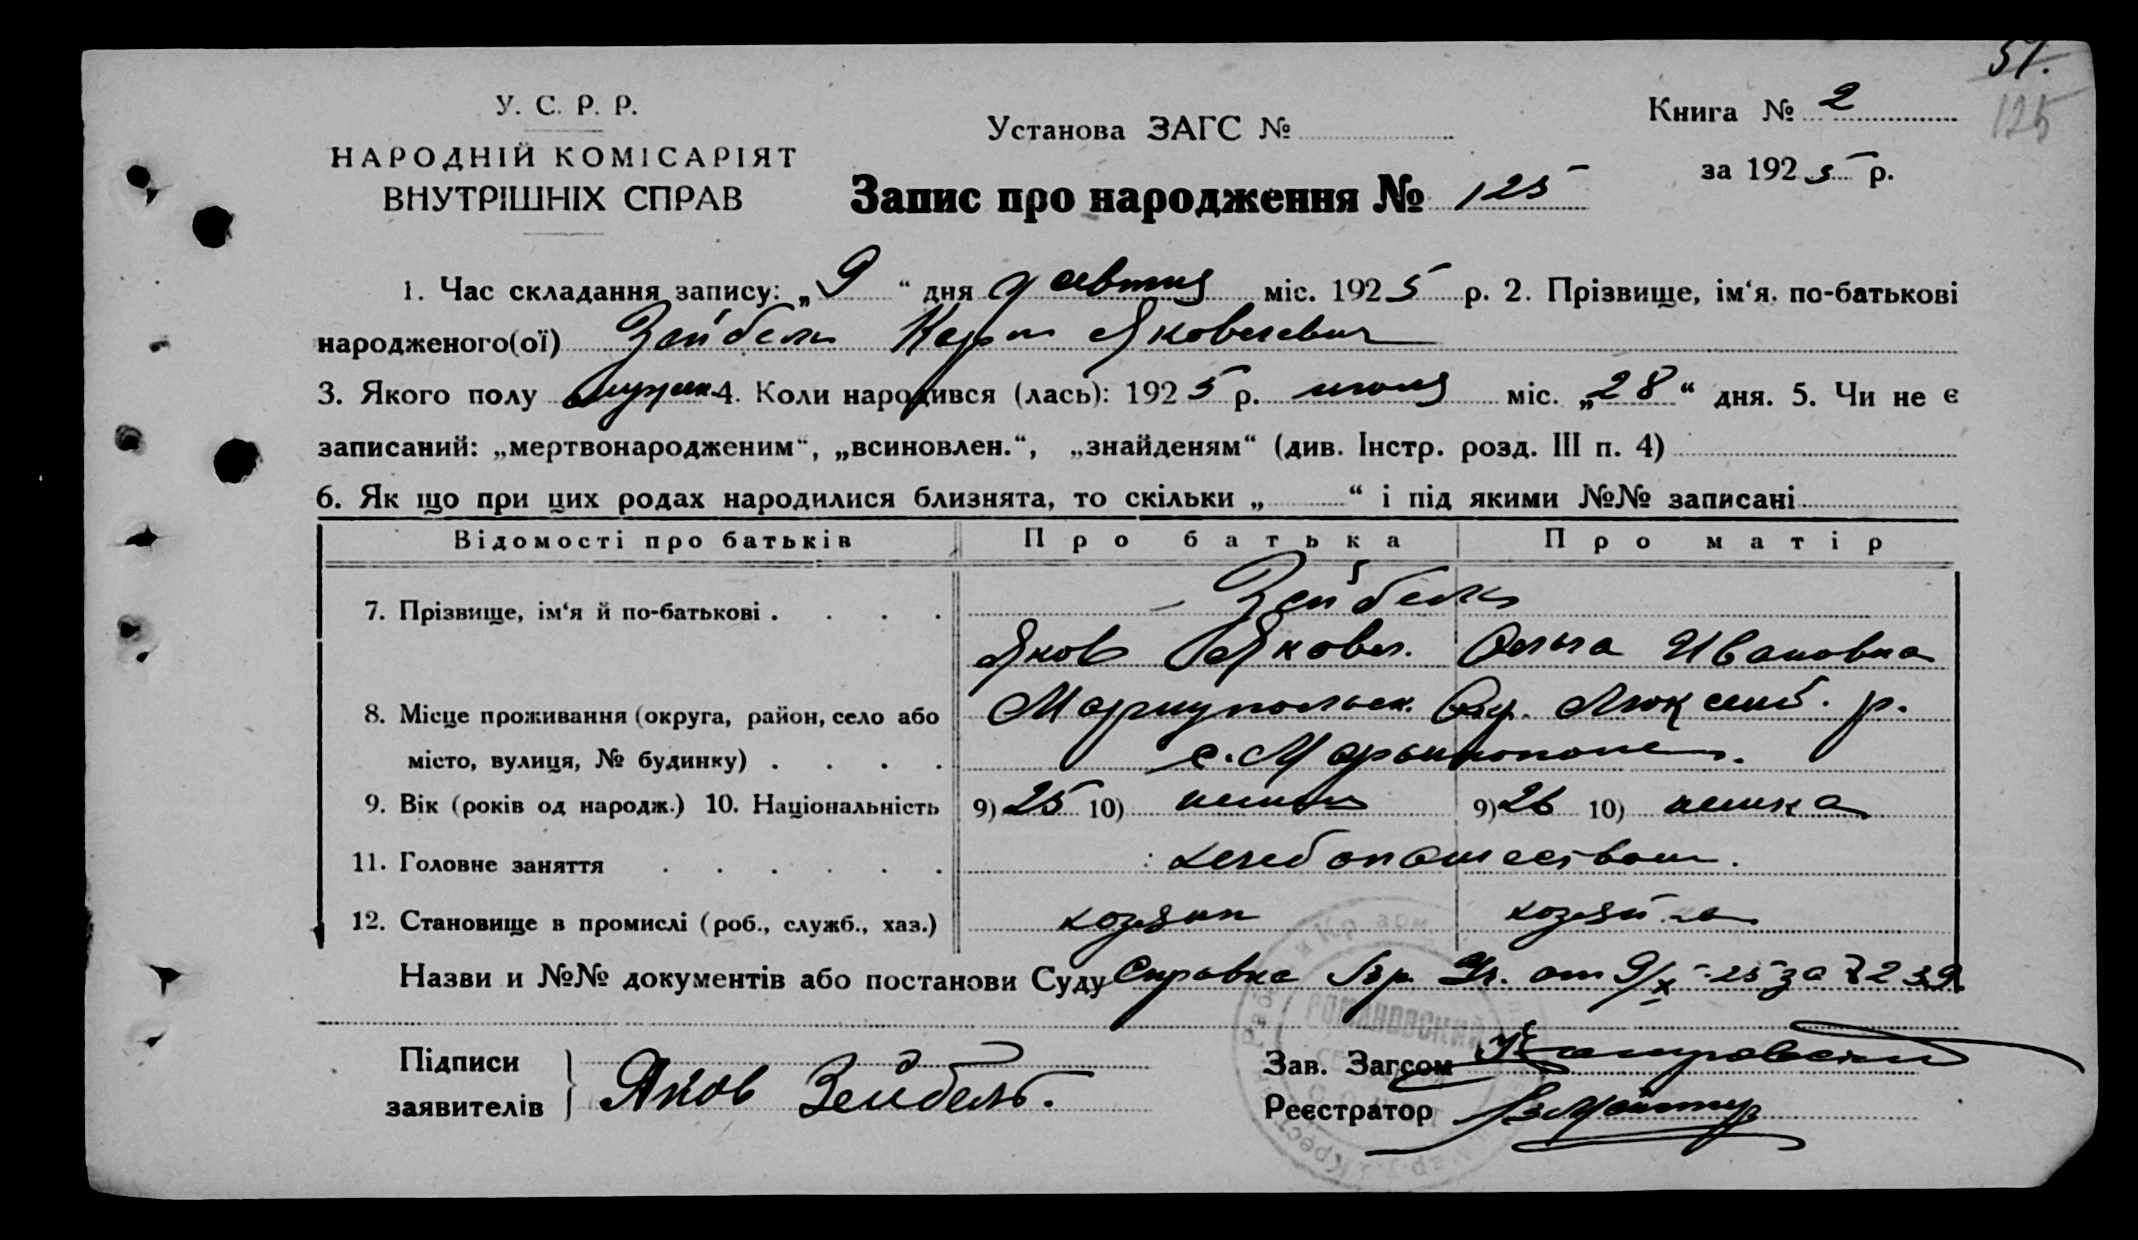 57.
125
У. С. Р. Р.
НАРОДНІЙ КОМІСАРІЯТ
ВНУТРІШНІХ СПРАВ
Установа ЗАГС №
Книга № 2
за 1925 р.
Запис про народження № 125
1. Час складання запису: „9“ дня октября міс. 1925 р. 2. Прізвище, ім‘я, по-батькові
народженого(ої) Зайбель Карл Яковлевич
3. Якого полу мужск. 4. Коли народився (лась): 1925 р. июля міс. „28“ дня. 5. Чи не є
записаний: „мертвонародженим“, „всиновлен.“, „знайденям“ (див. Інстр. розд. III п. 4)
6. Як що при цих родах народилися близнята, то скільки „ “ і під якими №№ записані
Відомості про батьків Про батька Про матір
7. Прізвище, ім‘я й по-батькові . . . . Зейбель
Яков Яковл. Ольга Ивановна
8. Місце проживання (округа, район, село або Мариупольск. Окр. Люксемб. р.
місто, вулиця, № будинку) . . . . с.
9. Вік (років од народж.) 10. Національність 9) 25 10) немец 9) 26 10) немка
11. Головне заняття . . . . . . хлебопашеством.
12. Становище в промислі (роб., служб., хаз.) хозяин хозяйка
Назви и №№ документів або постанови Суду Справка от 9/X-25 за
РОМАНОВСКИЙ
Підписи
заявителів } Яков Зейбель.
Зав. Загсом
Реєстратор